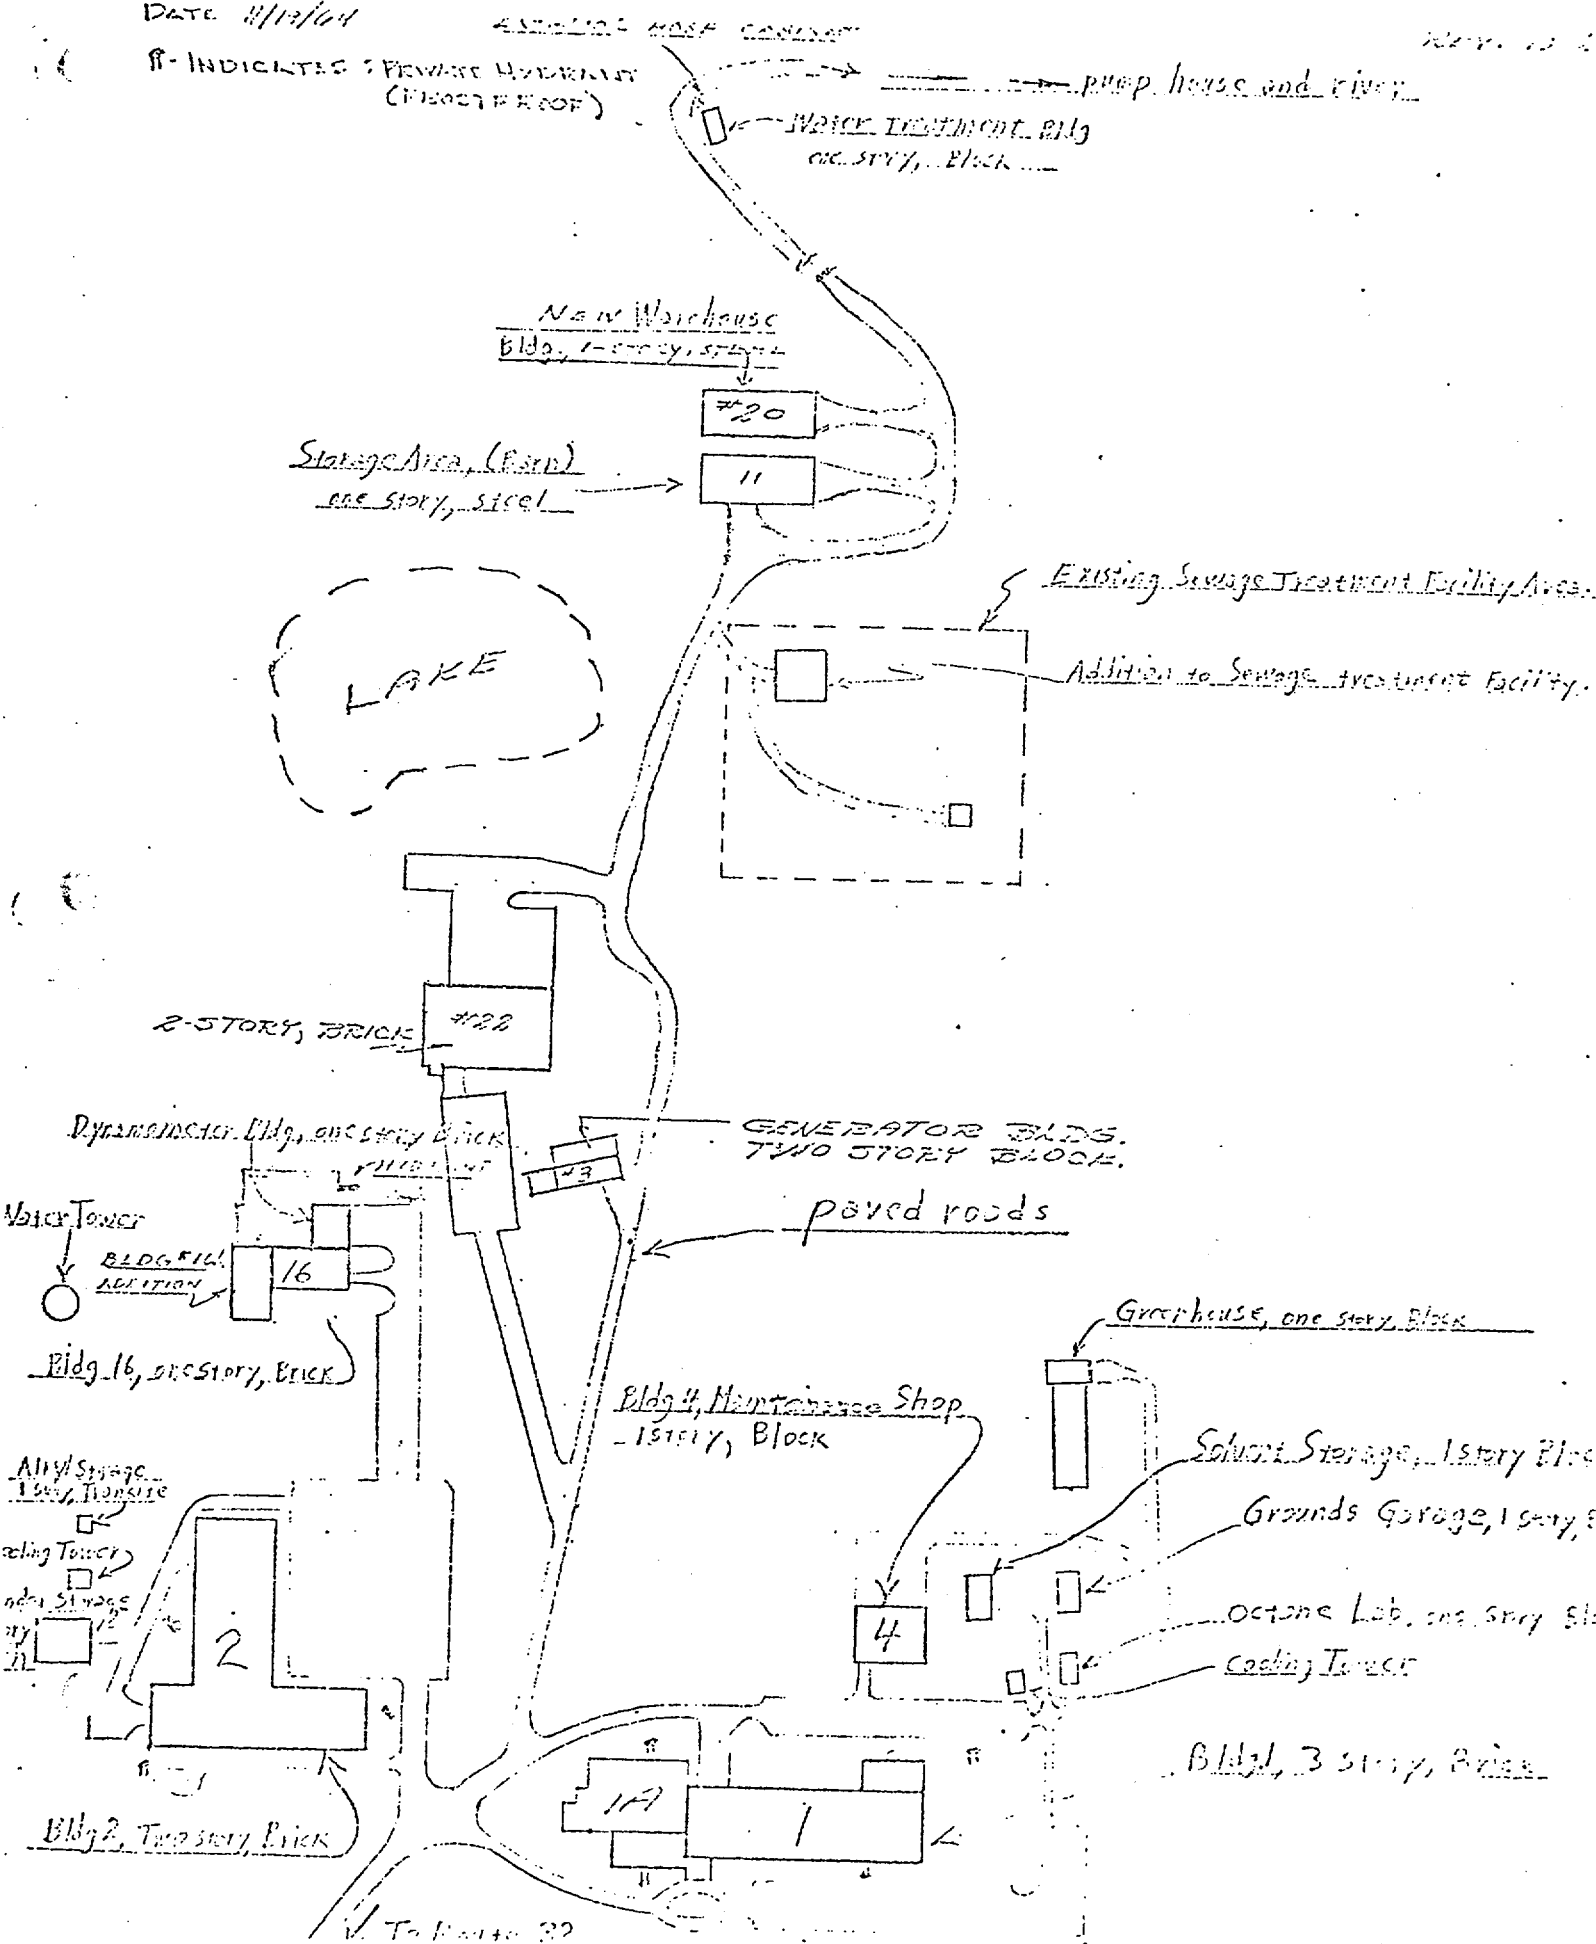 DATE 11/13/64
- INDICATES PRIVATE HYDRANT
(FROSTPROOF)
HOSE CABINET
pump house and river
Water Treatment Bldg
one story, Block
New Warehouse
Bldg., 1-story, steel
#20
Storage Area, (Barn)
one story, steel
11
Existing Sewage Treatment Facility Area.
LAKE
Addition to Sewage treatment Facility.
#22
2-STORY, BRICK
Dynamometer Bldg, one story Brick
GENERATOR BLDG.
TWO STORY BLOCK.
#3
paved roads
Water Tower
BLDG #16
ADDITION
16
Bldg 16, one story, Brick
Greenhouse, one story, Block
Bldg 4, Maintenance Shop
1 story, Block
Solvent Storage, 1 story
Storage
1 story, Transite
Grounds Garage, 1 story,
Tower
Storage
2
4
Octane Lab, one story
Cooling Tower
Bldg 1, 3 story, Brick
1A
1
Bldg 2, Two story, Brick
To Route 32